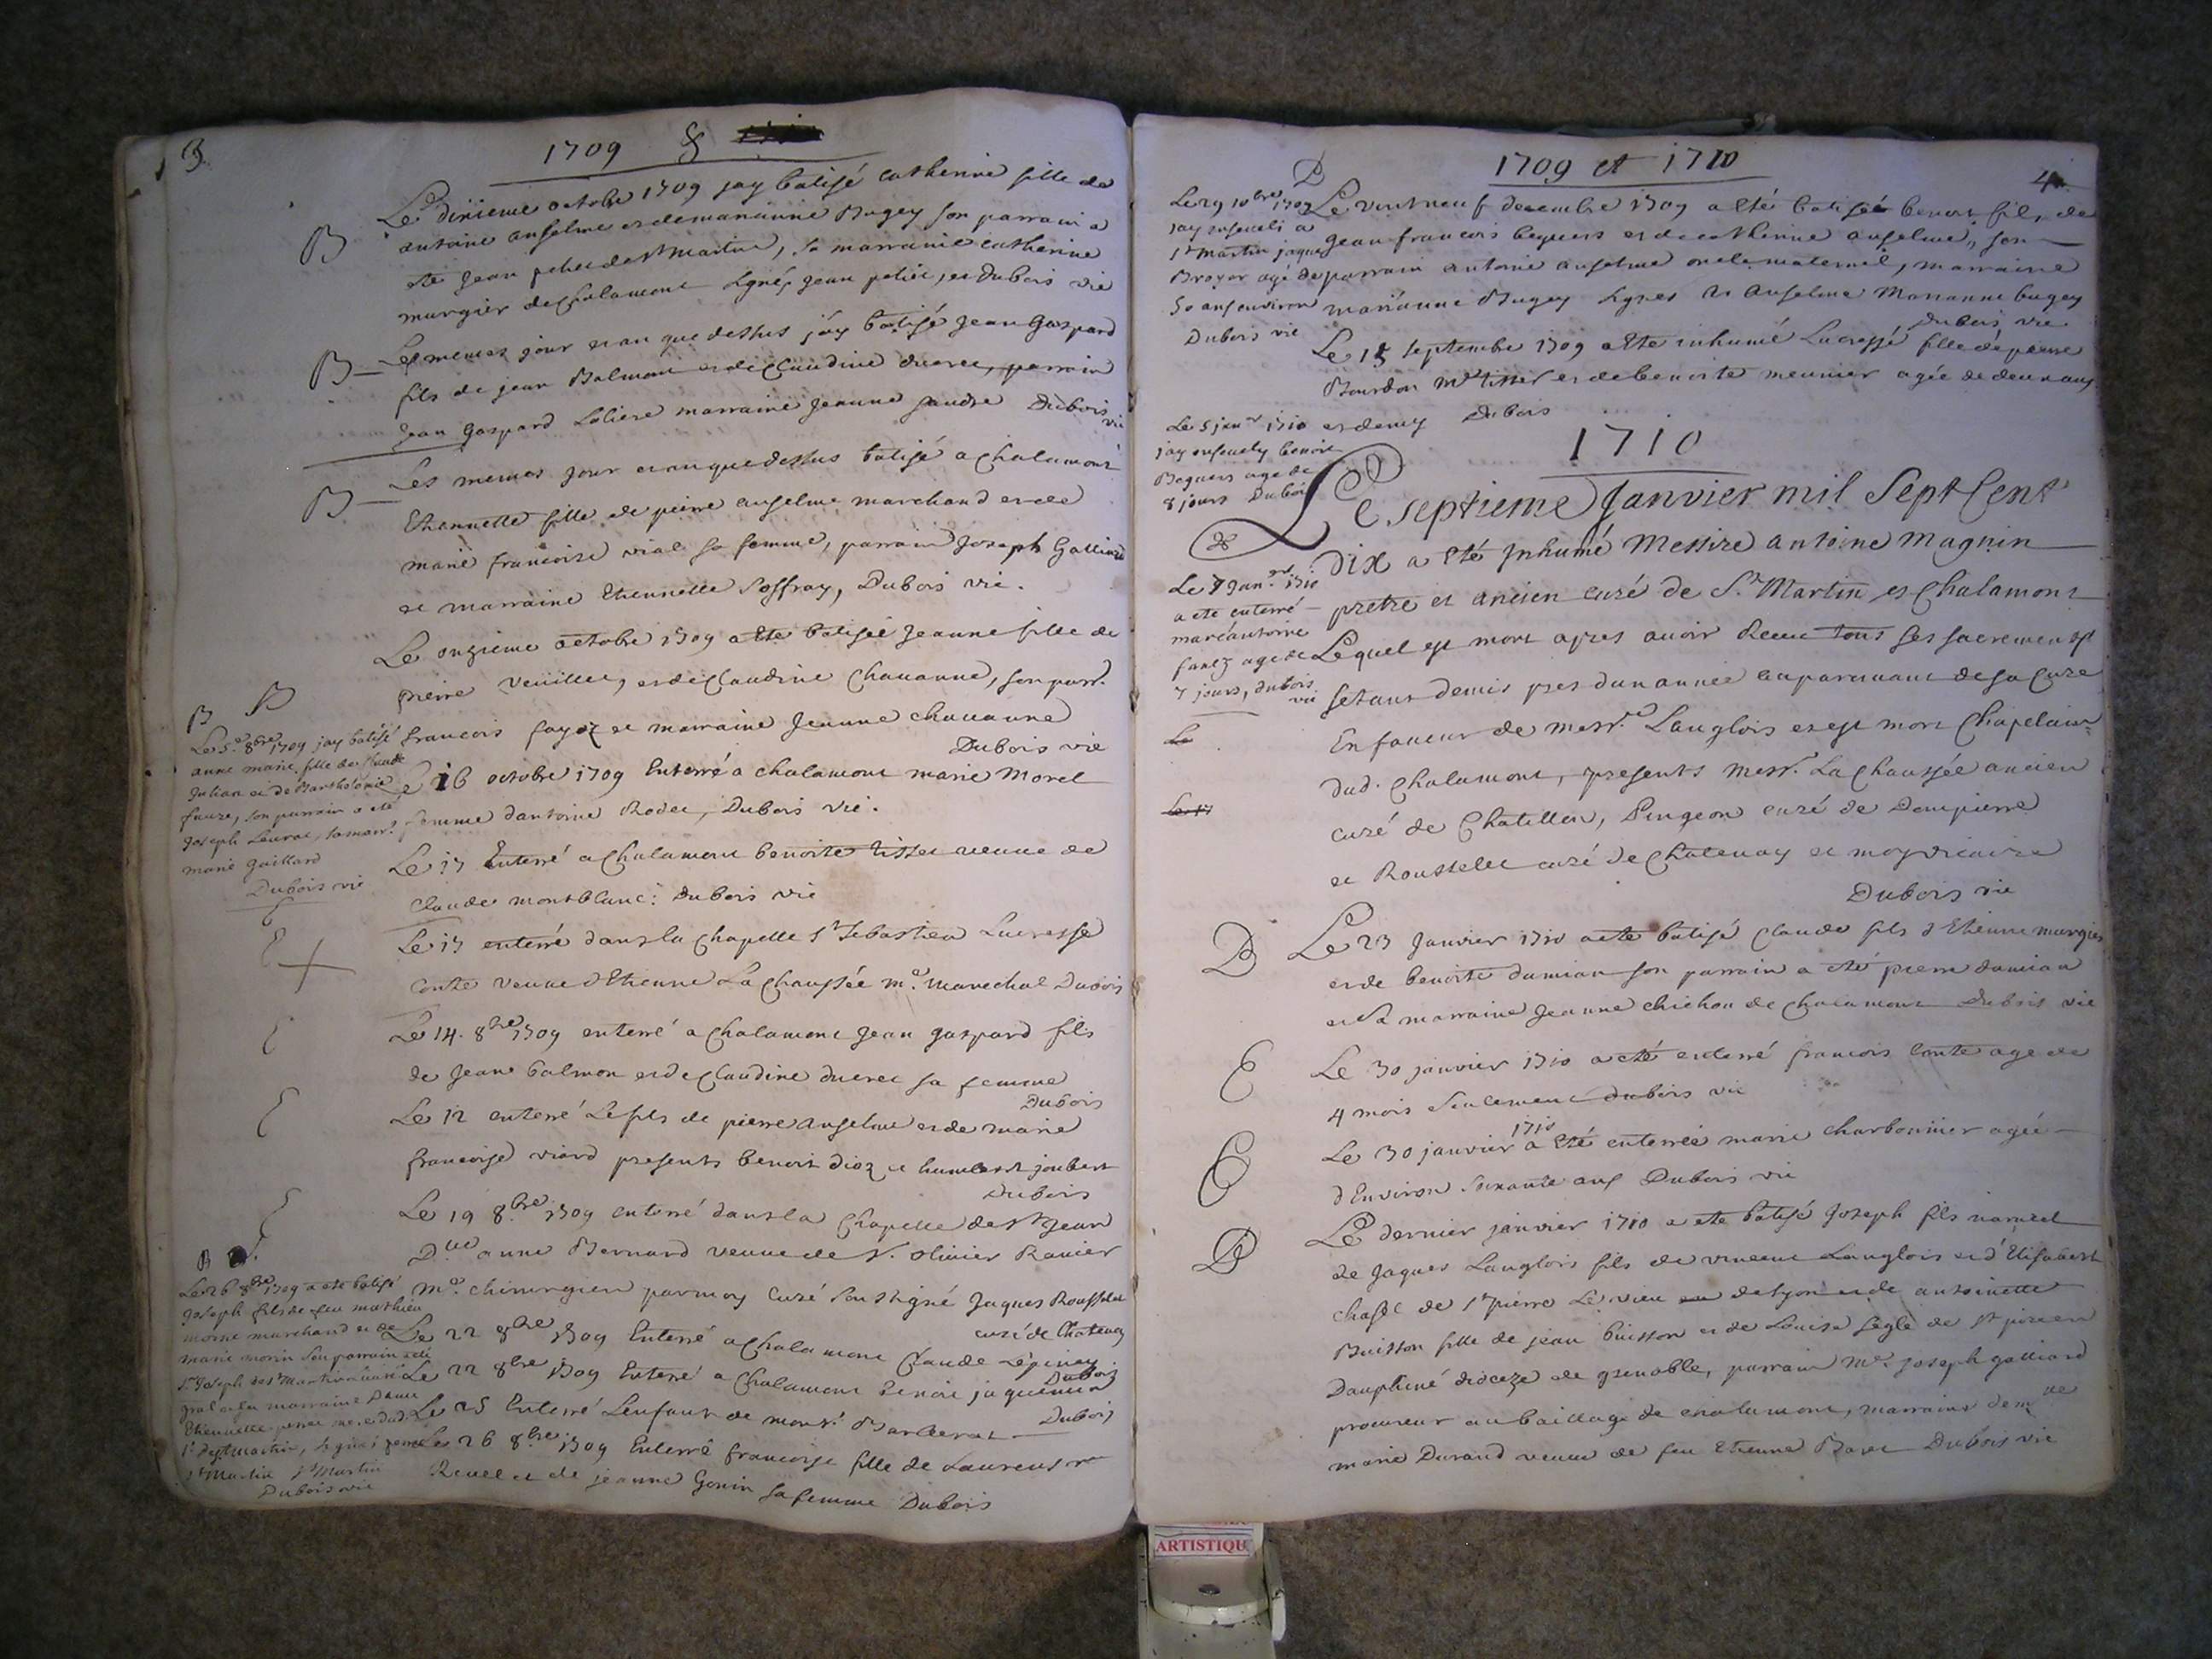 3
1709 &
B
Le dixieme octobre 1709 jay batisé catherine fille de
antoine anselme et de marianne Bugey son parrain a
eté jean de St Martin, sa marraine catherine
murgier de Chalamont Dubois vie
B
Les memes jour et an que dessus j'ay batisé jean Gaspard
fils de jean Balmon et de Claudine ducret, parrain
jean Gaspard marraine jeanne Dubois
vie
B
Les memes jour et an que dessus batisé a Chalamont
Etiennette fille de pierre anselme marchand et de
marie francoise vial sa femme, parrain Joseph Galliard
et marraine Etiennette Soffray, Dubois vie.
Le onzieme octobre 1709 a eté batisée jeanne fille de
pierre et de Claudine Chavanne, son parr.
francois fayoz et marraine jeanne chavanne
Dubois vie
B B
Le 5e 8bre 1709 jay batisé
anne marie fille de Claude
Julian et de Bartholomie
faure, son parrain a eté
joseph Leurat, sa marr.
marie gaillard
Dubois vie
E
Le 16 octobre 1709 Enterré a chalamont marie Morel
femme dantoine Rodet, Dubois vie.
Le 13 Enterré a Chalamont benoite tisset veuve de
claude montblanc: Dubois vie
E
Le 13 enterré dans la Chapelle St Sebastien Lucresse
Conte veuve d'Etienne La Chaussée me. marechal Dubois
E
Le 14. 8bre 1709 enterré a Chalamont jean gaspard fils
de jean balmon et de Claudine ducret sa femme
Dubois
E
Le 12 enterré Le fils de pierre anselme et de marie
francoise viard presents benoit dioz et humbert joubert
Dubois
E
Le 19 8bre 1709 enterré dans la Chapelle de St jean
Dlle anne Bernard veuve de Sr. olivier Ravier
me. chirurgien par moy Curé Soussigné Jaques Rousselet
curé de Chatenay
Le 22 8bre 1709 Enterré a Chalamont Claude Lepiney
Dubois
Le 22 8bre 1709 Enterré a Chalamont benoit jaquemin
Dubois
Le 25 Enterré L'enfant de monsr. Barberat
Le 26 8bre 1709 Enterré francoise fille de Laurens
Revel et de jeanne Gonin sa femme Dubois
B
Le 26 8bre 1709 a eté batisé
joseph fils de feu mathieu
moine marchand et de
marie morin son parrain a eté
Sr. joseph de St Martin
marraine Dame
Etiennette
St Martin St Martin
Dubois vie
1709 et 1710
4
B
Le vint neuf decembre 1709 a eté batisé benoit fils de
jean francois beguers et de catherine anselme, son
parrain antoine anselme oncle maternel, marraine
marianne Bugey signes anselme Marianne bugey
Dubois vie
Le 29 10bre 1709
jay enseveli a
St martin jaques
Broyer agé de
50 ans environ
Dubois vie
Le 15 septembre 1709 a eté inhumé Lucresse fille de pierre
Bourdon me tissier et de benoite meunier agée de deux ans
et demy Dubois
Le 5 janer 1710
jay ensevely benoit
Beguers age de
8 jours Dubois
1710
Le septieme Janvier mil Sept Cent
Dix a eté Inhumé Messire antoine Magnin
pretre et ancien curé de St. Martin et Chalamont
Lequel est mort apres avoir Receu tous ses sacremens
setant demis pres dun année auparavant de sa Cure
En faveur de messre. Langlois et est mort Chapelain
dud. Chalamont, presents Messr. La Chaussée ancien
curé de Chatillon, Pingeon curé de Dompierre
et Rousselet curé de Chatenay et moy vicaire
Dubois vie
Le 7 Janer 1710
a ete enterré
marc antoine
age de
7 jours, dubois
vie
Le
Le 17
B
Le 23 Janvier 1710 a eté batisé Claude fils d'Etienne murgier
et de benoite damian son parrain a eté pierre damian
et sa marraine jeanne chichon de chalamont Dubois vie
E
Le 30 janvier 1710 a eté enterré francois Conte age de
4 mois seulement dubois vie
E
Le 30 janvier 1710 a eté enterrée marie charbonnier agée
d'Environ soixante ans Dubois vie
B
Le dernier janvier 1710 a ete batisé Joseph fils naturel
de jaques Langlois fils de vincent Langlois et d'Elisabeth
de St pierre Le vieu de lyon et de antoinette
Buisson fille de jean buisson et de Louise de St
Dauphiné dioceze de grenoble, parrain Me. joseph galliard
procureur au baillage de chalamont, marraine demlle
marie Durand veuve de feu Etienne Dubois vie
ARTISTIQU